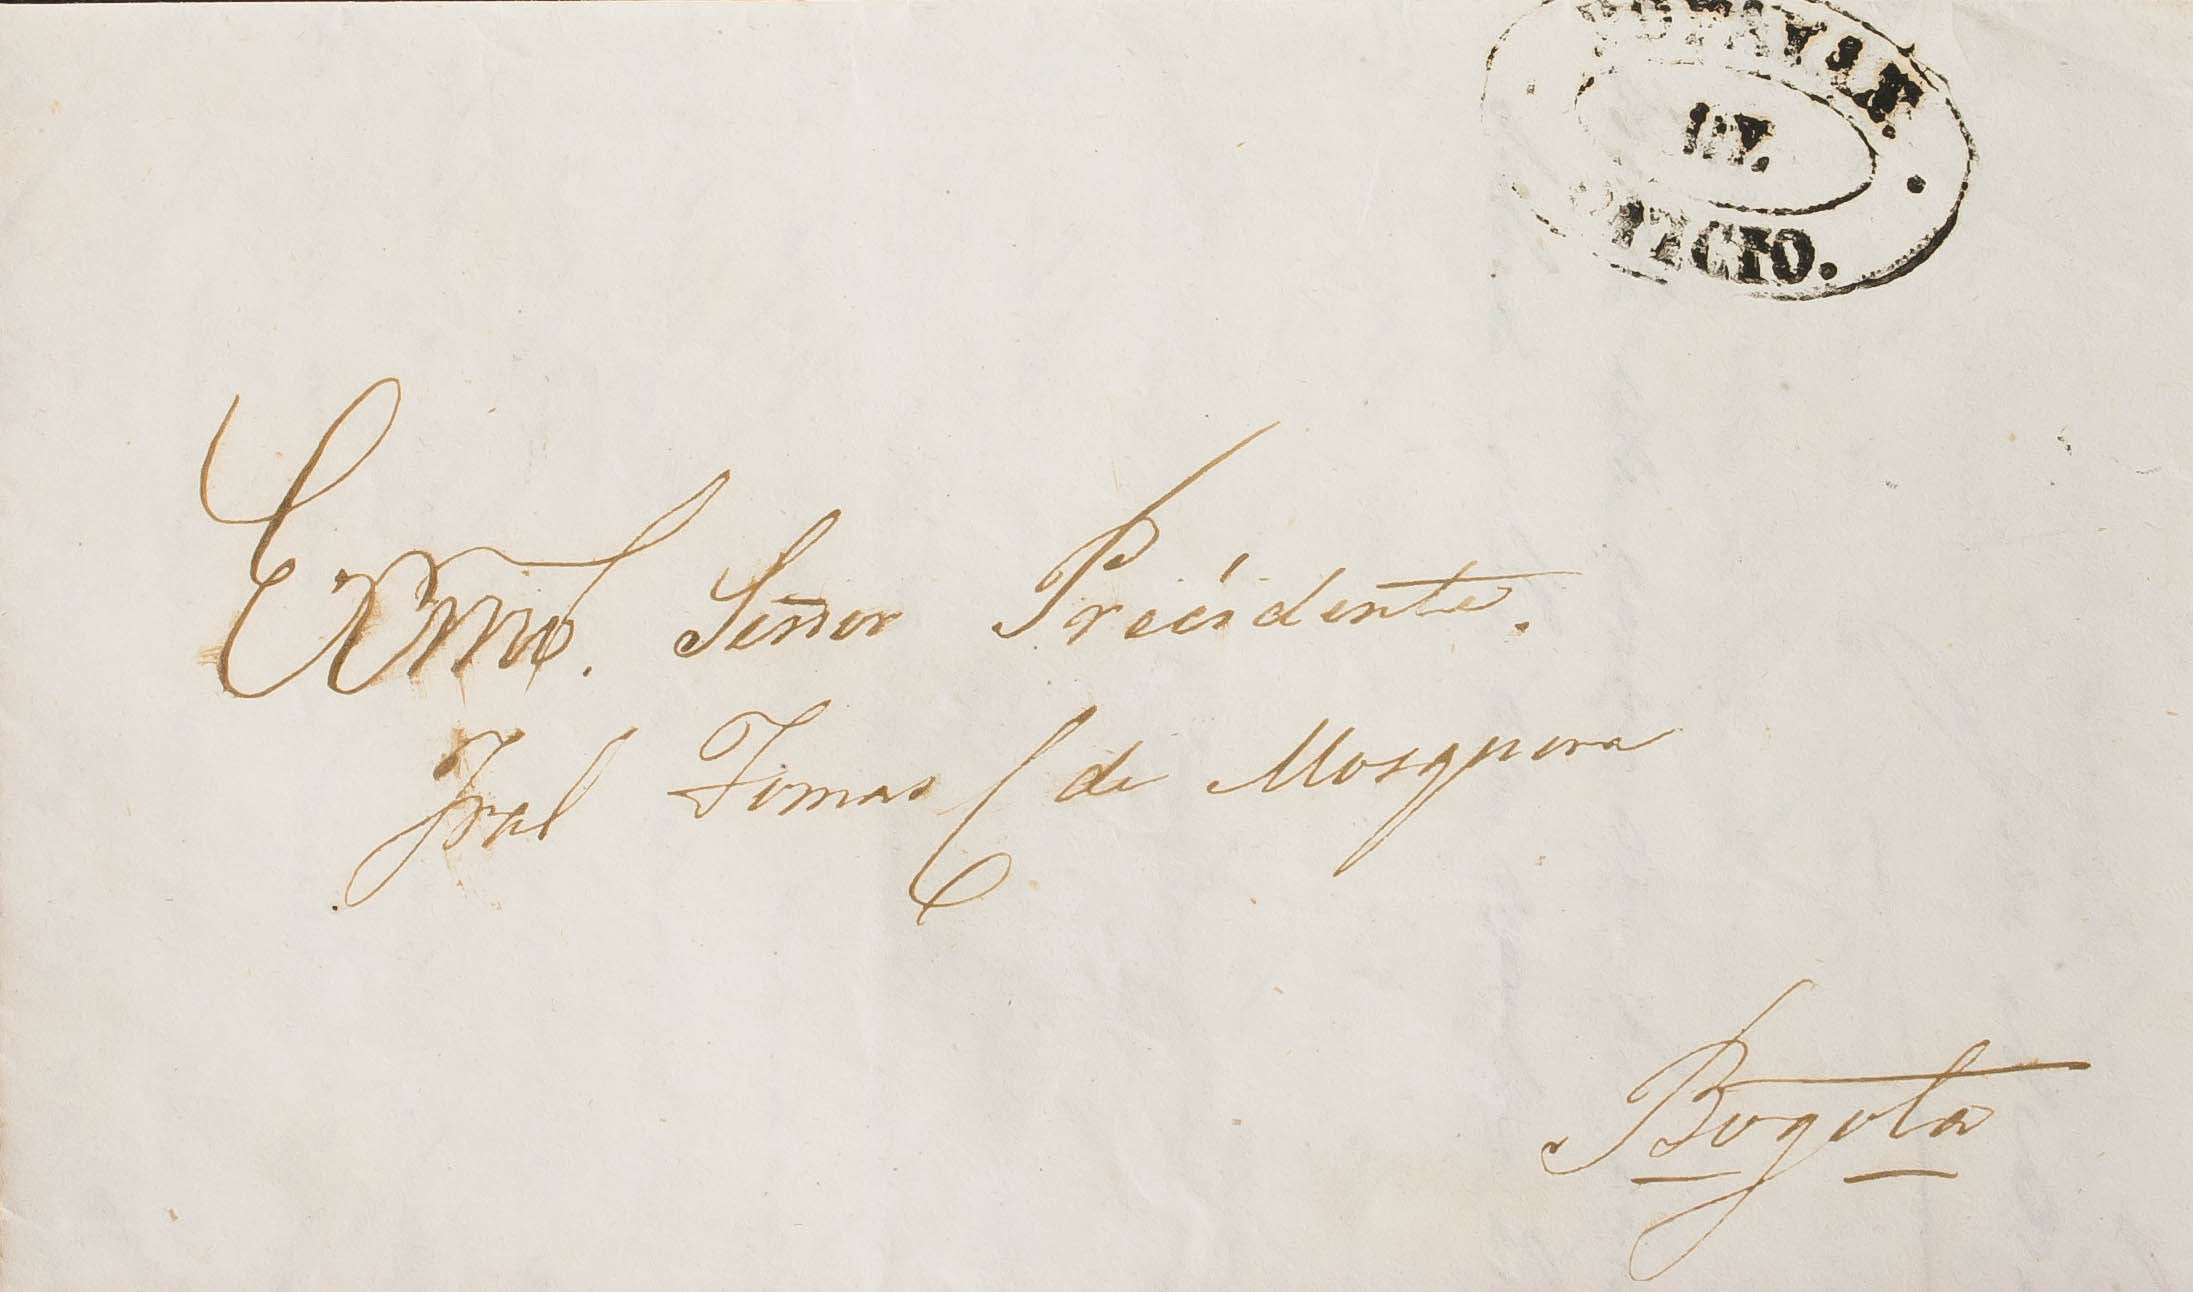 OFICIO.
Exmo. Señor Precidente.
Jral Tomas C de Mosquera
Bogota